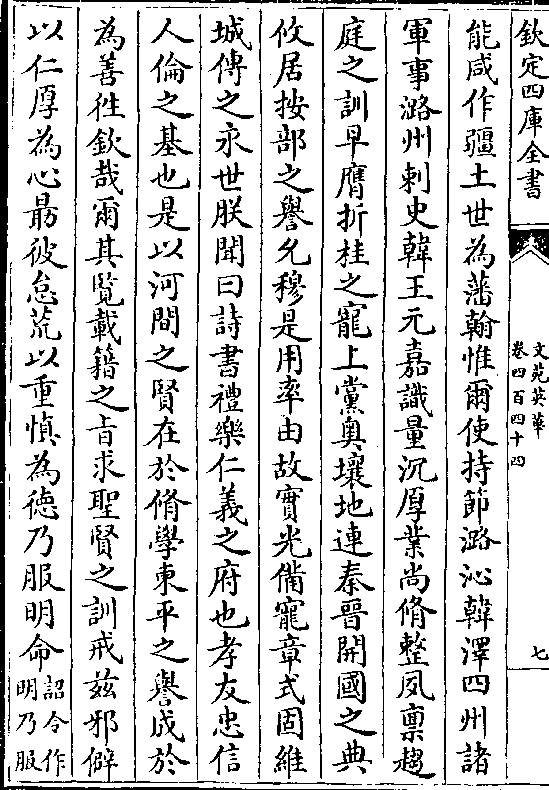 欽定四庫全書
文苑英華
卷四百四十四
七
能咸作疆土世為藩翰惟爾使持節潞沁韓澤四州諸
軍事潞州刺史韓王元嘉識量沉厚業尚脩整夙禀趨
庭之訓早膺折桂之寵上黨奥壤地連秦晉開國之典
攸居按部之譽允穆是用率由故實光備寵章式固維
城傳之永世朕聞曰詩書禮樂仁義之府也孝友忠信
人倫之基也是以河間之賢在於脩學東平之譽成於
為善徃欽哉爾其覽載籍之㫖求聖賢之訓戒兹邪僻
以仁厚為心勗彼怠荒以重慎為徳乃服明命詔令作
明乃服